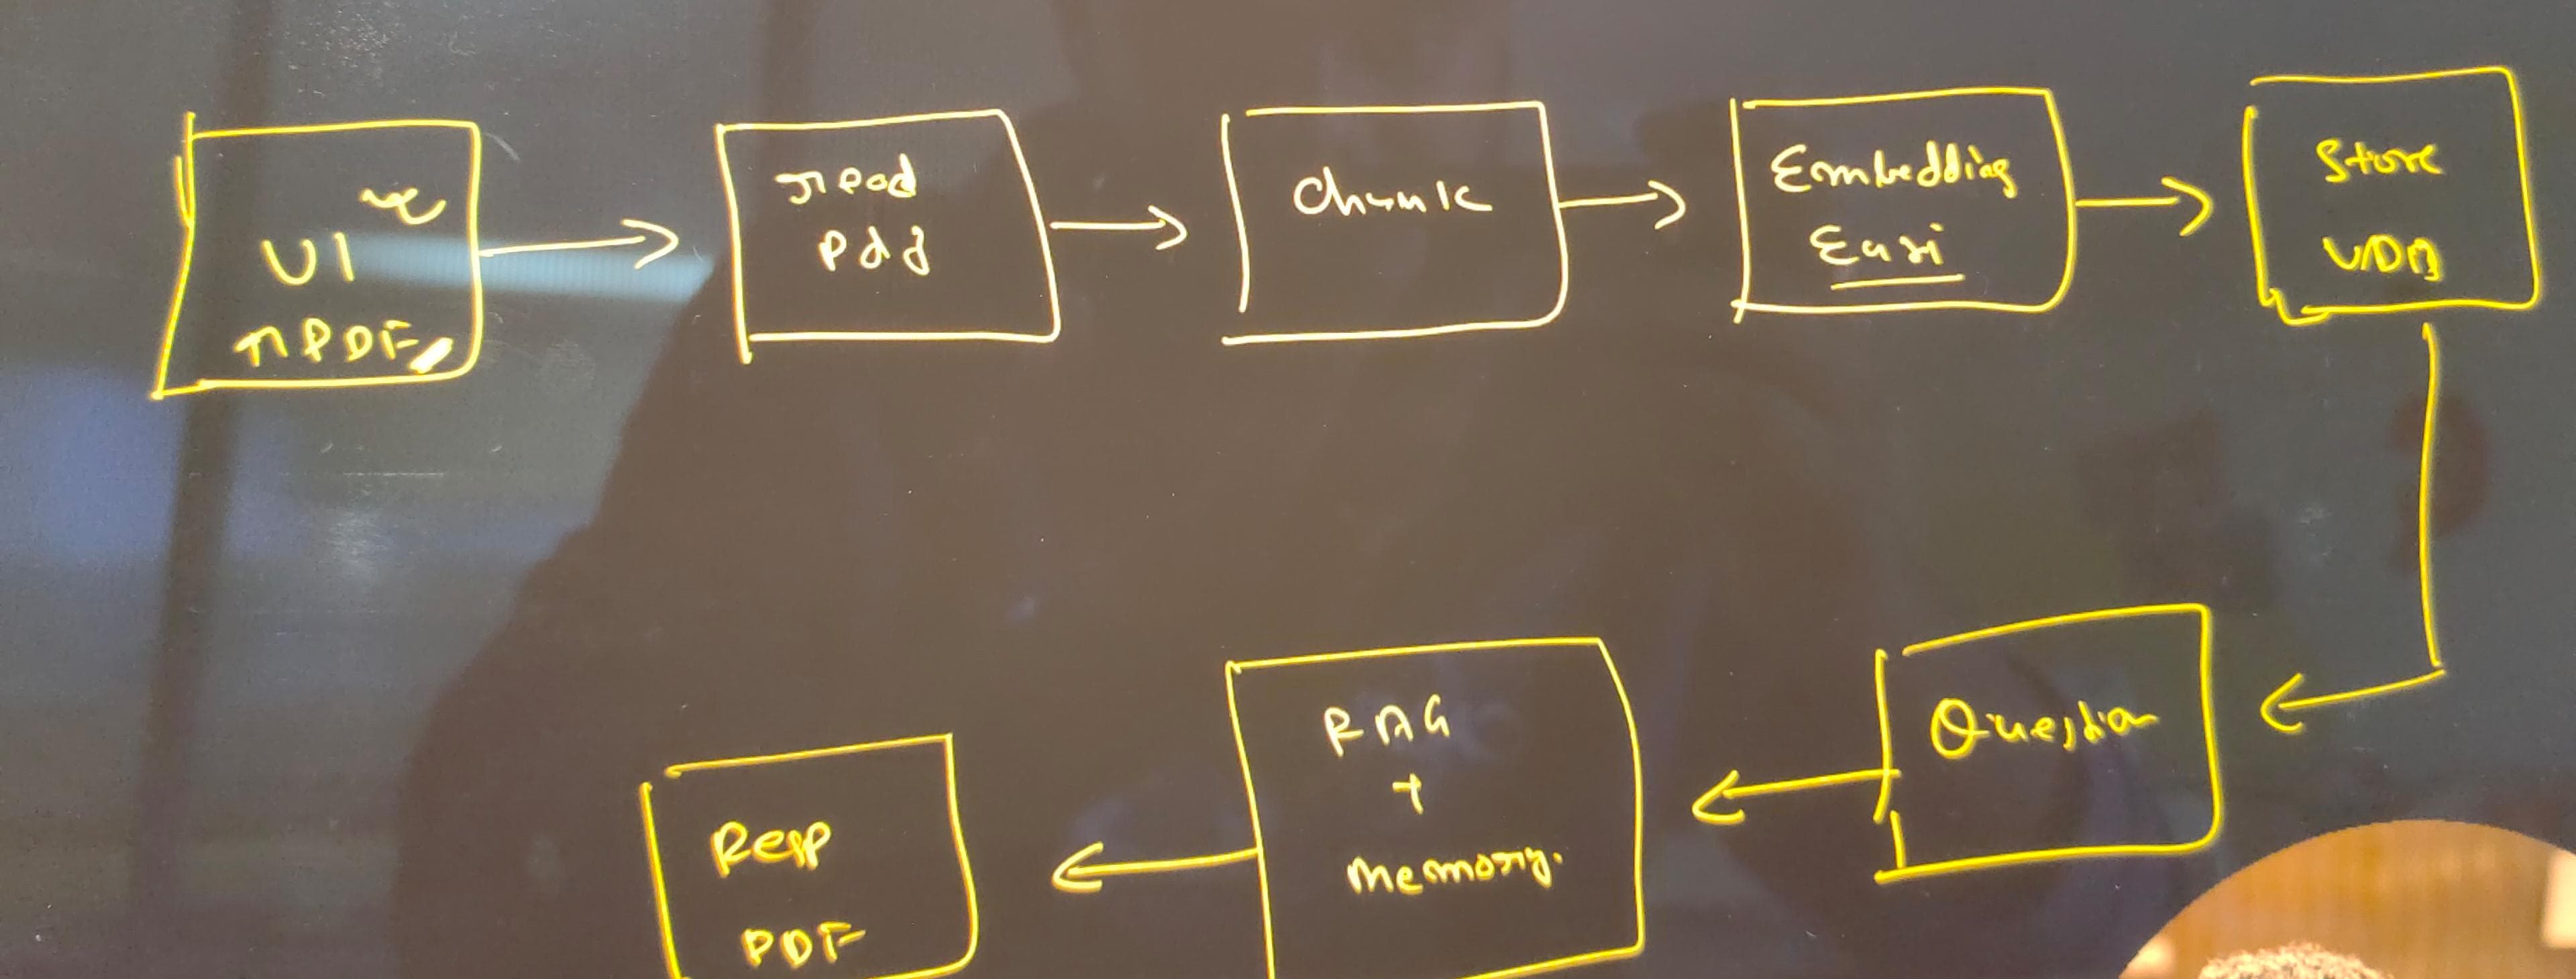 UI
n PDF
read
pdf
chunk
Embedding
Euri
Store
VDB
Question
RAG
+
memory.
Resp
PDF